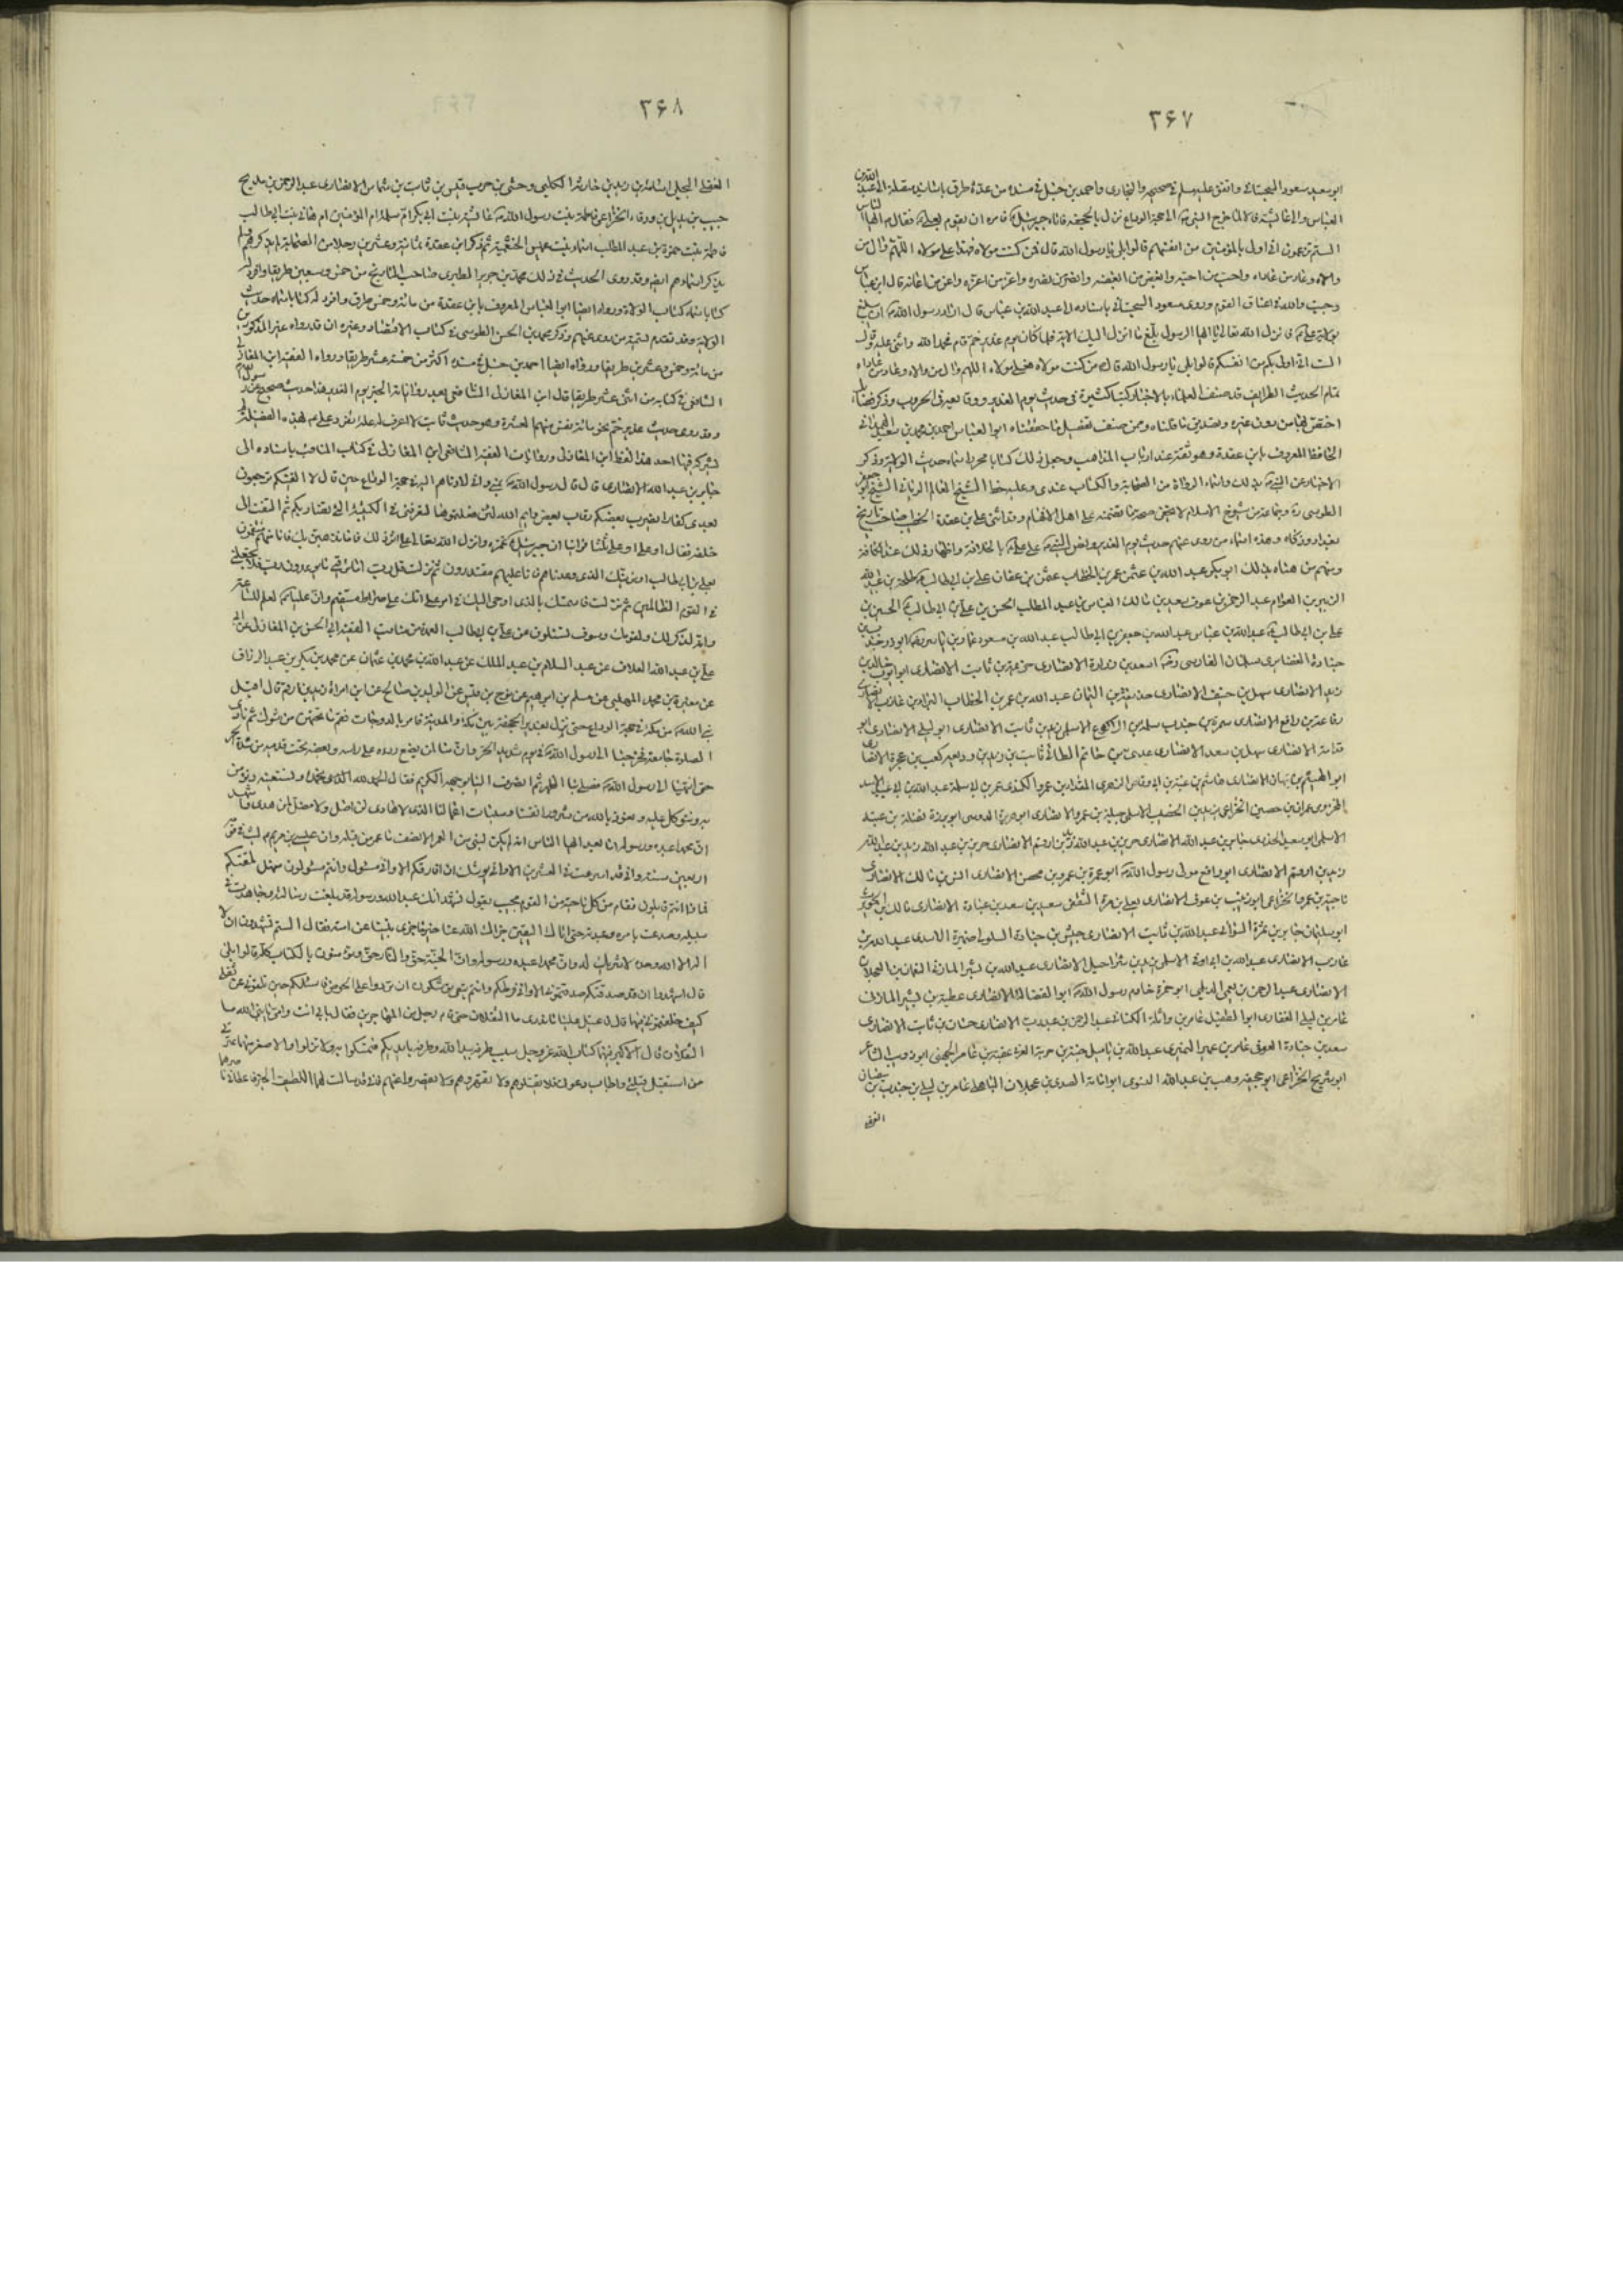 ۳۶۷
ابو سعيد مسعود السجستانى واتفق عليه مسلم فى صحيحه والبخارى واحمد بن حنبل فى مسنده من عدة طرق باسانيد متصلة الى عبد الله بن
العباس والى عائشة قالا لما خرج النبى الى حجة الوداع نزل بالجحفة فاتاه جبرئيل فامره ان يقوم بعلى فقال ايها الناس
الستم تزعمون انى اولى بالمؤمنين من انفسهم قالوا بلى يا رسول الله قال فمن كنت مولاه فهذا على مولاه اللهم وال من
والاه وعاد من عاداه واحب من احبه وابغض من ابغضه وانصر من نصره واعز من اعزه واعن من اعانه قال ابن عباس
وجبت والله فى اعناق القوم وروى مسعود السجستانى باسناده الى عبد الله بن عباس قال اراد رسول الله ان يبلغ
بولاية على فانزل الله تعالى يا ايها الرسول بلغ ما انزل اليك الاية فلما كان يوم غدير خم قام فحمد الله واثنى عليه وقال
الست اولى بكم من انفسكم قالوا بلى يا رسول الله قال من كنت مولاه فعلى مولاه اللهم وال من والاه وعاد من عاداه
تمام الحديث الطرايف قد صنف العلماء بالاخبار كتبا كثيرة فى حديث يوم الغدير ووقايعه فى الحروب وذكر فضائل
اختص بها من دون غيره وتصديق ما قلناه وممن صنف تفصيل ما حققناه ابو العباس احمد بن محمد بن سعيد الهمدانى
الحافظ المعروف بابن عقدة وهو ثقة عند ارباب المذاهب وجعل ذلك كتابا محررا سماه حديث الولاية وذكر
الاخبار عن النبى بذلك واسماء الرواة من الصحابة والكتاب عندى وعليه خط الشيخ العالم الربانى الشيخ ابو جعفر
الطوسى وجماعة من شيوخ الاسلام لا يخفى صحة ما تضمنه على اهل الافهام وقد اثنى على ابن عقدة الخطيب صاحب تاريخ
بغداد وزكاه وهذه اسماء من روى عنهم حديث يوم الغدير ونص النبى على على بالخلافة واظهار ذلك عند الكافة
ومنهم من هناه بذلك ابو بكر عبد الله بن عثمن عمر بن الخطاب عثمن بن عفان على بن ابى طالب طلحة بن عبيد الله
الزبير بن العوام عبد الرحمن بن عوف سعيد بن مالك العباس بن عبد المطلب الحسن بن على بن ابى طالب الحسين بن
على بن ابى طالب عبد الله بن عباس عبد الله بن جعفر بن ابى طالب عبد الله بن مسعود عمار بن ياسر ابو ذر جندب بن
جنادة الغفارى سلمان الفارسى اسعد بن زرارة الانصارى خزيمة بن ثابت الانصارى ابو ايوب خالد بن
زيد الانصارى سهل بن حنيف الانصارى حذيفة بن اليمان عبد الله بن عمر بن الخطاب البراء بن عازب الانصارى
رفاعة بن رافع الانصارى سمرة بن جندب سلمة بن الاكوع الاسلمى زيد بن ثابت الانصارى ابو ليلى الانصارى ابو
قدامة الانصارى سهل بن سعد الانصارى عدى بن حاتم الطائى ثابت بن زيد بن وديعة كعب بن عجرة الانصارى
ابو الهيثم بن التيهان الانصارى هاشم بن عتبة بن ابى وقاص الزهرى المقداد بن عمرو الكندى عمر بن ابى سلمة عبد الله بن ابى
المخزومى عمران بن حصين الخزاعى بريدة بن الخصيب الاسلمى جبلة بن عمرو الانصارى ابو هريرة الدوسى ابو برزة نضلة بن عبيد
الاسلمى ابو سعيد الخدرى جابر بن عبد الله الانصارى جرير بن عبد الله زيد بن ارقم الانصارى جرير بن عبد الله زيد بن عبد الله
زيد بن ارقم الانصارى ابو رافع مولى رسول الله ابو عمرة بن عمرو بن محصن الانصارى انس بن مالك الانصارى
ناجية بن عمرو الخزاعى ابو زينب بن عوف الانصارى يعلى بن مرة الثقفى سعيد بن سعد بن عبادة الانصارى مالك بن الحويرث
ابو سليمان جابر بن سمرة السوائى عبد الله بن ثابت الانصارى حبشى بن جنادة السلولى ضميرة الاسدى عبد الله بن
عازب الانصارى عبد الله بن ابى اوفى الاسلمى يزيد بن شراحيل الانصارى عبد الله بن بشر المازنى النعمان بن العجلان
الانصارى عبد الرحمن بن يعمر الديلمى ابو حمزة خادم رسول الله ابو الفضالة الانصارى عطية بن بشر المازنى
عامر بن ليلى الغفارى ابو الطفيل عامر بن واثلة الكنانى عبد الرحمن بن عبد رب الانصارى حسان بن ثابت الانصارى
سعد بن جنادة العوفى عامر بن عمير النميرى عبد الله بن ياميل حبة بن جوين العرنى عقبة بن عامر الجهنى ابو ذويب الشاعر
ابو شريح الخزاعى ابو جحيفة وهب بن عبد الله ابو امامة الصدى بن عجلان الباهلى عامر بن ليلى بن جندب بن سفيان
۳۶۸
البجلى اسامة بن زيد بن حارثة الكلبى وحشى بن حرب قيس بن ثابت بن شماس الانصارى عبد الرحمن بن مدلج
حبيب بن بديل بن ورقاء الخزاعى فاطمة بنت رسول الله عائشة بنت ابى بكر ام سلمة ام المؤمنين ام هانى بنت ابى طالب
فاطمة بنت حمزة بن عبد المطلب اسماء بنت عميس الخثعمية ثم ذكر ابن عقدة ثمانية وعشرين رجلا من الصحابة لم يذكرهم ولم
يذكر اسماءهم ايضا وقد روى الحديث فى ذلك محمد بن جرير الطبرى صاحب التاريخ من خمس وسبعين طريقا وافرد له
كتابا سماه كتاب الولاية ورواه ايضا ابو العباس المعروف بابن عقدة من مائة وخمس طرق وافرد له كتابا سماه حديث
الولاية وقد تقدم تسمية من روى عنهم وذكر محمد بن الحسن الطوسى فى كتاب الاقتصاد وغيره ان قد رواه غير المذكورين
من مائة وخمس وعشرين طريقا ورواه ايضا احمد بن حنبل فى مسنده اكثر من خمسة عشر طريقا ورواه الفقيه ابن المغازلى
الشافعى فى كتابه من اثنى عشر طريقا قال ابن المغازلى الشافعى بعد رواياته الخبر يوم الغدير هذا حديث صحيح عن رسول الله
وقد روى حديث غدير خم نحو مائة نفس منهم العشرة وهو حديث ثابت لا اعرف له علة تفرد على بهذه الفضيلة لم
يشركه فيها احد هذا لفظ ابن المغازلى وروايات الفقيه الشافعى ابن المغازلى فى كتاب المناقب باسناده الى
جابر بن عبد الله الانصارى قال قال رسول الله بمنى وانى لادناهم اليه فى حجة الوداع حين قال لا الفينكم ترجعون
بعدى كفارا يضرب بعضكم رقاب بعض وايم الله لئن فعلتموها لتعرفنى فى الكتيبة التى تضاربكم ثم التفت الى
خلفه فقال او على او على ثلثا فراينا ان جبرئيل غمزه وانزل الله تعالى على اثر ذلك فاما نذهبن بك فانا منهم منتقمون
بعلى بن ابى طالب او نرينك الذى وعدناهم فانا عليهم مقتدرون ثم نزلت قل رب اما ترينى ما يوعدون رب فلا تجعلنى
فى القوم الظالمين ثم نزلت فاستمسك بالذى اوحى اليك فى امر على انك على صراط مستقيم وان عليا لعلم للساعة
وانه لذكر لك ولقومك وسوف تسئلون عن على بن ابى طالب العمدة من مناقب الفقيه ابى الحسن بن المغازلى عن ابى
على بن عبد الله العلاف عن عبد السلام بن عبد الملك عن عبد الله بن محمد بن عثمان عن محمد بن بكر بن عبد الرزاق
عن مغيرة بن محمد المهلبى عن مسلم بن ابراهيم عن نوح بن قيس عن الوليد بن صالح عن ابن امراة زيد بن ارقم قال اقبل
نبى الله من مكة فى حجة الوداع حتى نزل بغدير الجحفة بين مكة والمدينة فامر بالدوحات فقم ما تحتهن من شوك ثم نادى
الصلوة جامعة فخرجنا الى رسول الله فى يوم شديد الحر وان منا لمن يضع رداءه على راسه وبعضه تحت قدميه من شدة الحر
حتى انتهينا الى رسول الله فصلى بنا الظهر ثم انصرف الينا بوجهه الكريم فقال الحمد لله الذى نحمده ونستعينه ونؤمن
به ونتوكل عليه ونعوذ بالله من شرور انفسنا وسيئات اعمالنا الذى لا هادى لمن اضل ولا مضل لمن هدى واشهد
ان محمدا عبده ورسوله اما بعد ايها الناس انه لم يكن لنبى من العمر الا نصف ما عمر من قبله وان عيسى بن مريم لبث فى قومه
اربعين سنة وانى قد اسرعت فى العشرين الا وانى يوشك ان افارقكم الا وانى مسئول وانتم مسئولون فهل بلغتكم
فماذا انتم قائلون فقام من كل ناحية من القوم مجيب يقول نشهد انك عبد الله ورسوله قد بلغت رسالته وجاهدت فى
سبيله وصدعت بامره وعبدته حتى اتاك اليقين جزاك الله عنا خير ما جزى نبيا عن امته فقال الستم تشهدون ان لا
اله الا الله وحده لا شريك له وان محمدا عبده ورسوله وان الجنة حق والنار حق وتؤمنون بالكتاب كله قالوا بلى
قال اشهدوا ان قد صدقتكم وصدقتمونى الا وانى فرطكم وانتم تبعى توشكون ان تردوا على الحوض فاسئلكم حين تلقونى عن ثقلى
كيف خلفتمونى فيهما قال فاعيل علينا ما ندرى ما الثقلان حتى قام رجل من المهاجرين فقال بابى انت وامى يا نبى الله ما
الثقلان قال الاكبر منهما كتاب الله عز وجل سبب طرف بيد الله وطرف بايديكم فتمسكوا به ولا تزلوا والاصغر منهما عترتى
من استقبل قبلتى واجاب دعوتى فلا تقتلوهم ولا تقهروهم ولا تقصروا عنهم فانى قد سالت لهما اللطيف الخبير فاعطانى